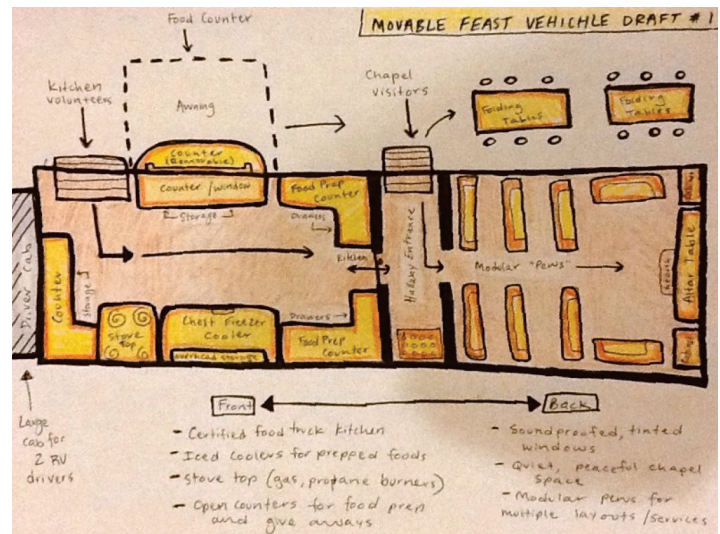 MOVABLE FEAST VEHICHLE DRAFT # 1
Food Counter
Kitchen
volunteers
Awning
Chapel
visitors
Folding
Tables
Folding
Tables
Counter
(Removable)
Counter/window
Storage
Food Prep
Counter
Drawers
Kitchen
Hallway Entrance
Modular "Pews"
Altar Table
Driver Cab
Counter
Storage
Stove
Top
Chest Freezer
Cooler
overhead storage
Drawers
Food Prep
Counter
Large
cab for
2 RV
drivers
Front
Back
- Certified food truck kitchen
- Iced coolers for prepped foods
- Stove top (gas, propane burners)
- Open counters for food prep
and give aways
- Soundproofed, tinted
windows
- Quiet, peaceful chapel
space
- Modular pews for
multiple layouts/services